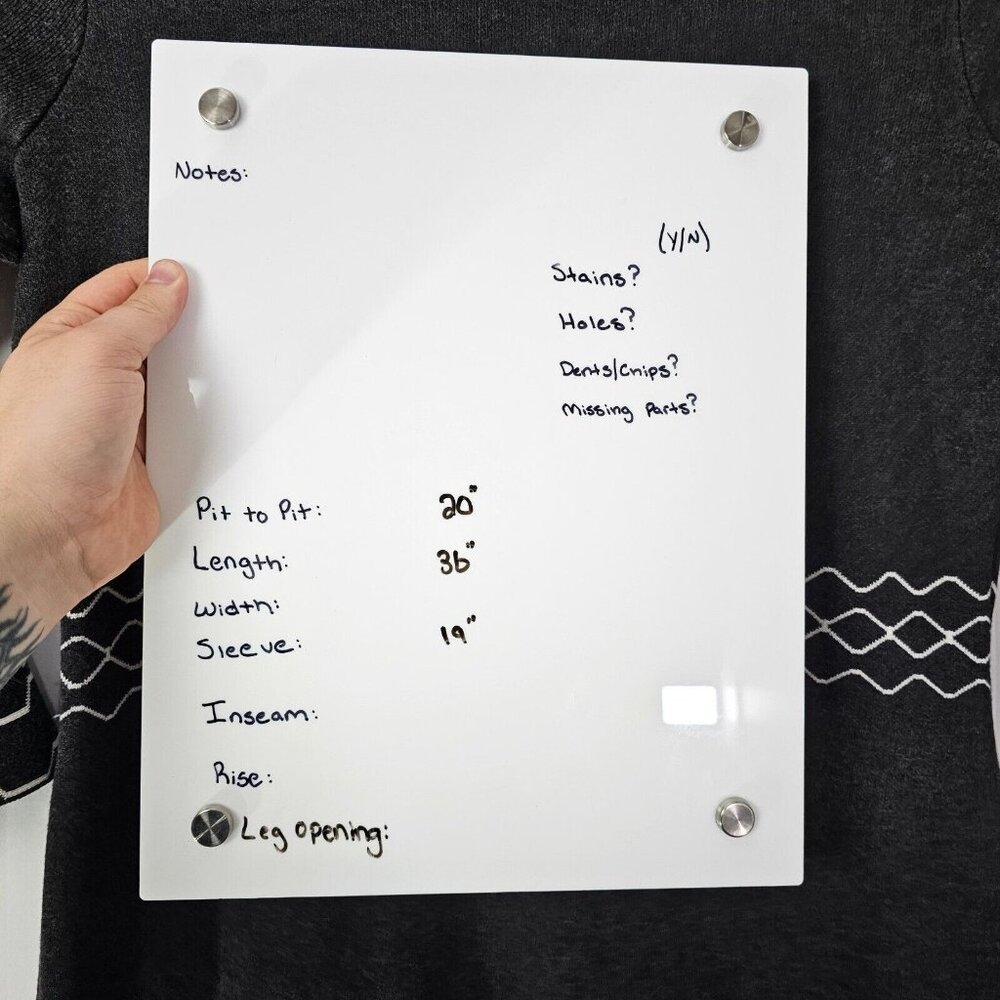 Notes:
(Y/N)
Stains?
Holes?
Dents/Chips?
Missing Parts?
Pit to Pit: 20"
Length: 36"
Width:
Sleeve: 19"
Inseam:
Rise:
Leg opening: